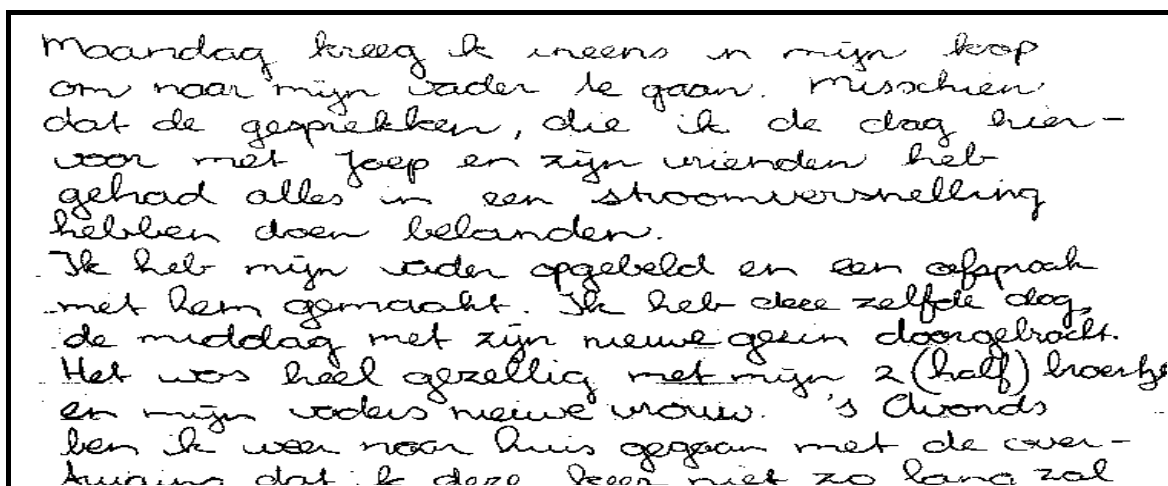 Maandag kreeg ik ineens in mijn kop
om naar mijn vader te gaan. Misschien
dat de gesprekken, die ik de dag hier-
voor met Joep en zijn vrienden heb
gehad alles in een stroomversnelling
hebben doen belanden.
Ik heb mijn vader opgebeld en een afspraak
met hem gemaakt. Ik heb deze zelfde dag,
de middag met zijn nieuwe gezin doorgebracht.
Het was heel gezellig met mijn 2 (half) broertje
en mijn vaders nieuwe vrouw. 's Avonds
ben ik weer naar huis gegaan met de over-
tuiging dat ik deze keer niet zo lang zal